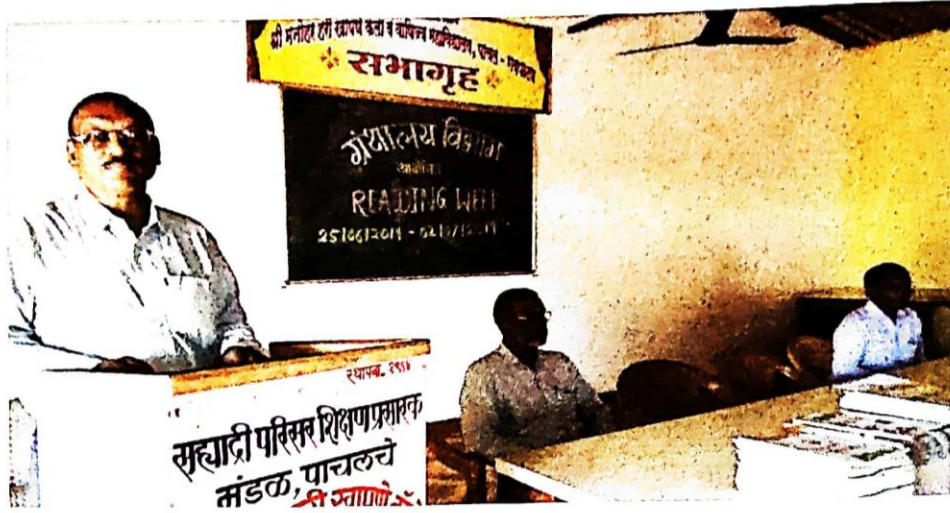 श्री मनोहर हरी खापणे कला व वाणिज्य महाविद्यालय, पाचल - रायपाटण
सभागृह
ग्रंथालय विभाग
आयोजित
READING WEEK
25/06/2019 - 02/07/2019
स्थापना-
सह्याद्री परिसर शिक्षण प्रसारक
मंडळ, पाचलचे
खापणे